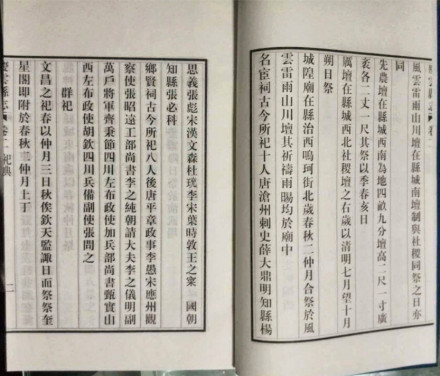 風雲雷雨山川壇在縣城南壇制與社稷同祭之日亦
同
先農壇在縣城西南為地四畝九分壇高二尺一寸廣
袤各二丈一尺其祭以季春亥日
厲壇在縣城西北社稷壇之右歲以清明七月望十月
朔日祭
城隍廟在縣治西鳴珂街北歲春秋二仲月合祭於風
雲雷雨山川壇其祈禱雨暘均於廟中
名宦祠古今所祀十人唐滄州刺史薛大鼎明知縣楊
思義張彪宋漢文森杜珖李宋葉時敦王之寀 國朝
知縣張必科
鄉賢祠古今所祀八人後唐平章政事李愚宋應州觀
察使張昭遠工部尚書李之純朝請大夫李之儀明副
萬戶將軍齊秉節四川左布政使加兵部尚書甄實山
西左布政使胡欽四川兵備副使張問之
群祀
文昌之祀春以仲月三日秋俟欽天監諏日而祭祭奎
星閣即附於春秋二仲月上丁
慶雲縣志 卷二 祀典 二